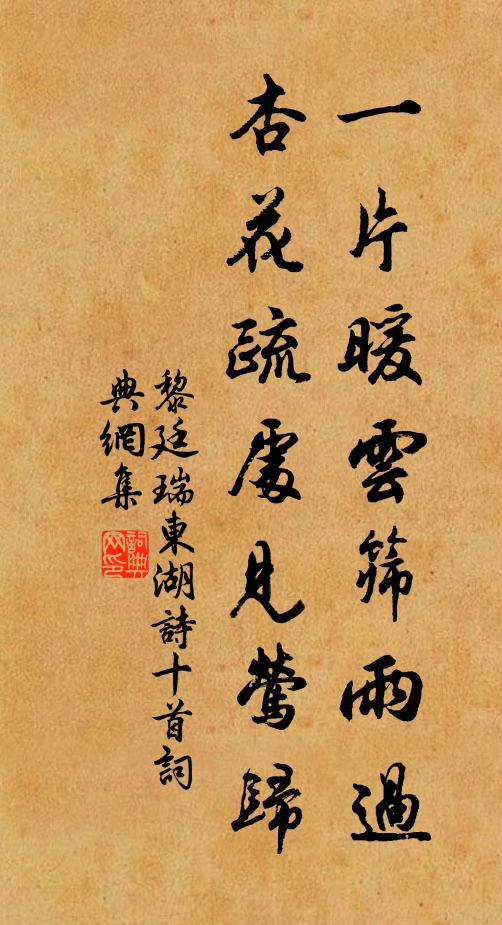 一片暖雲篩雨過
杏花疏處見鶯歸
黎廷瑞東湖詩十首詞
典網集
詞典
网印